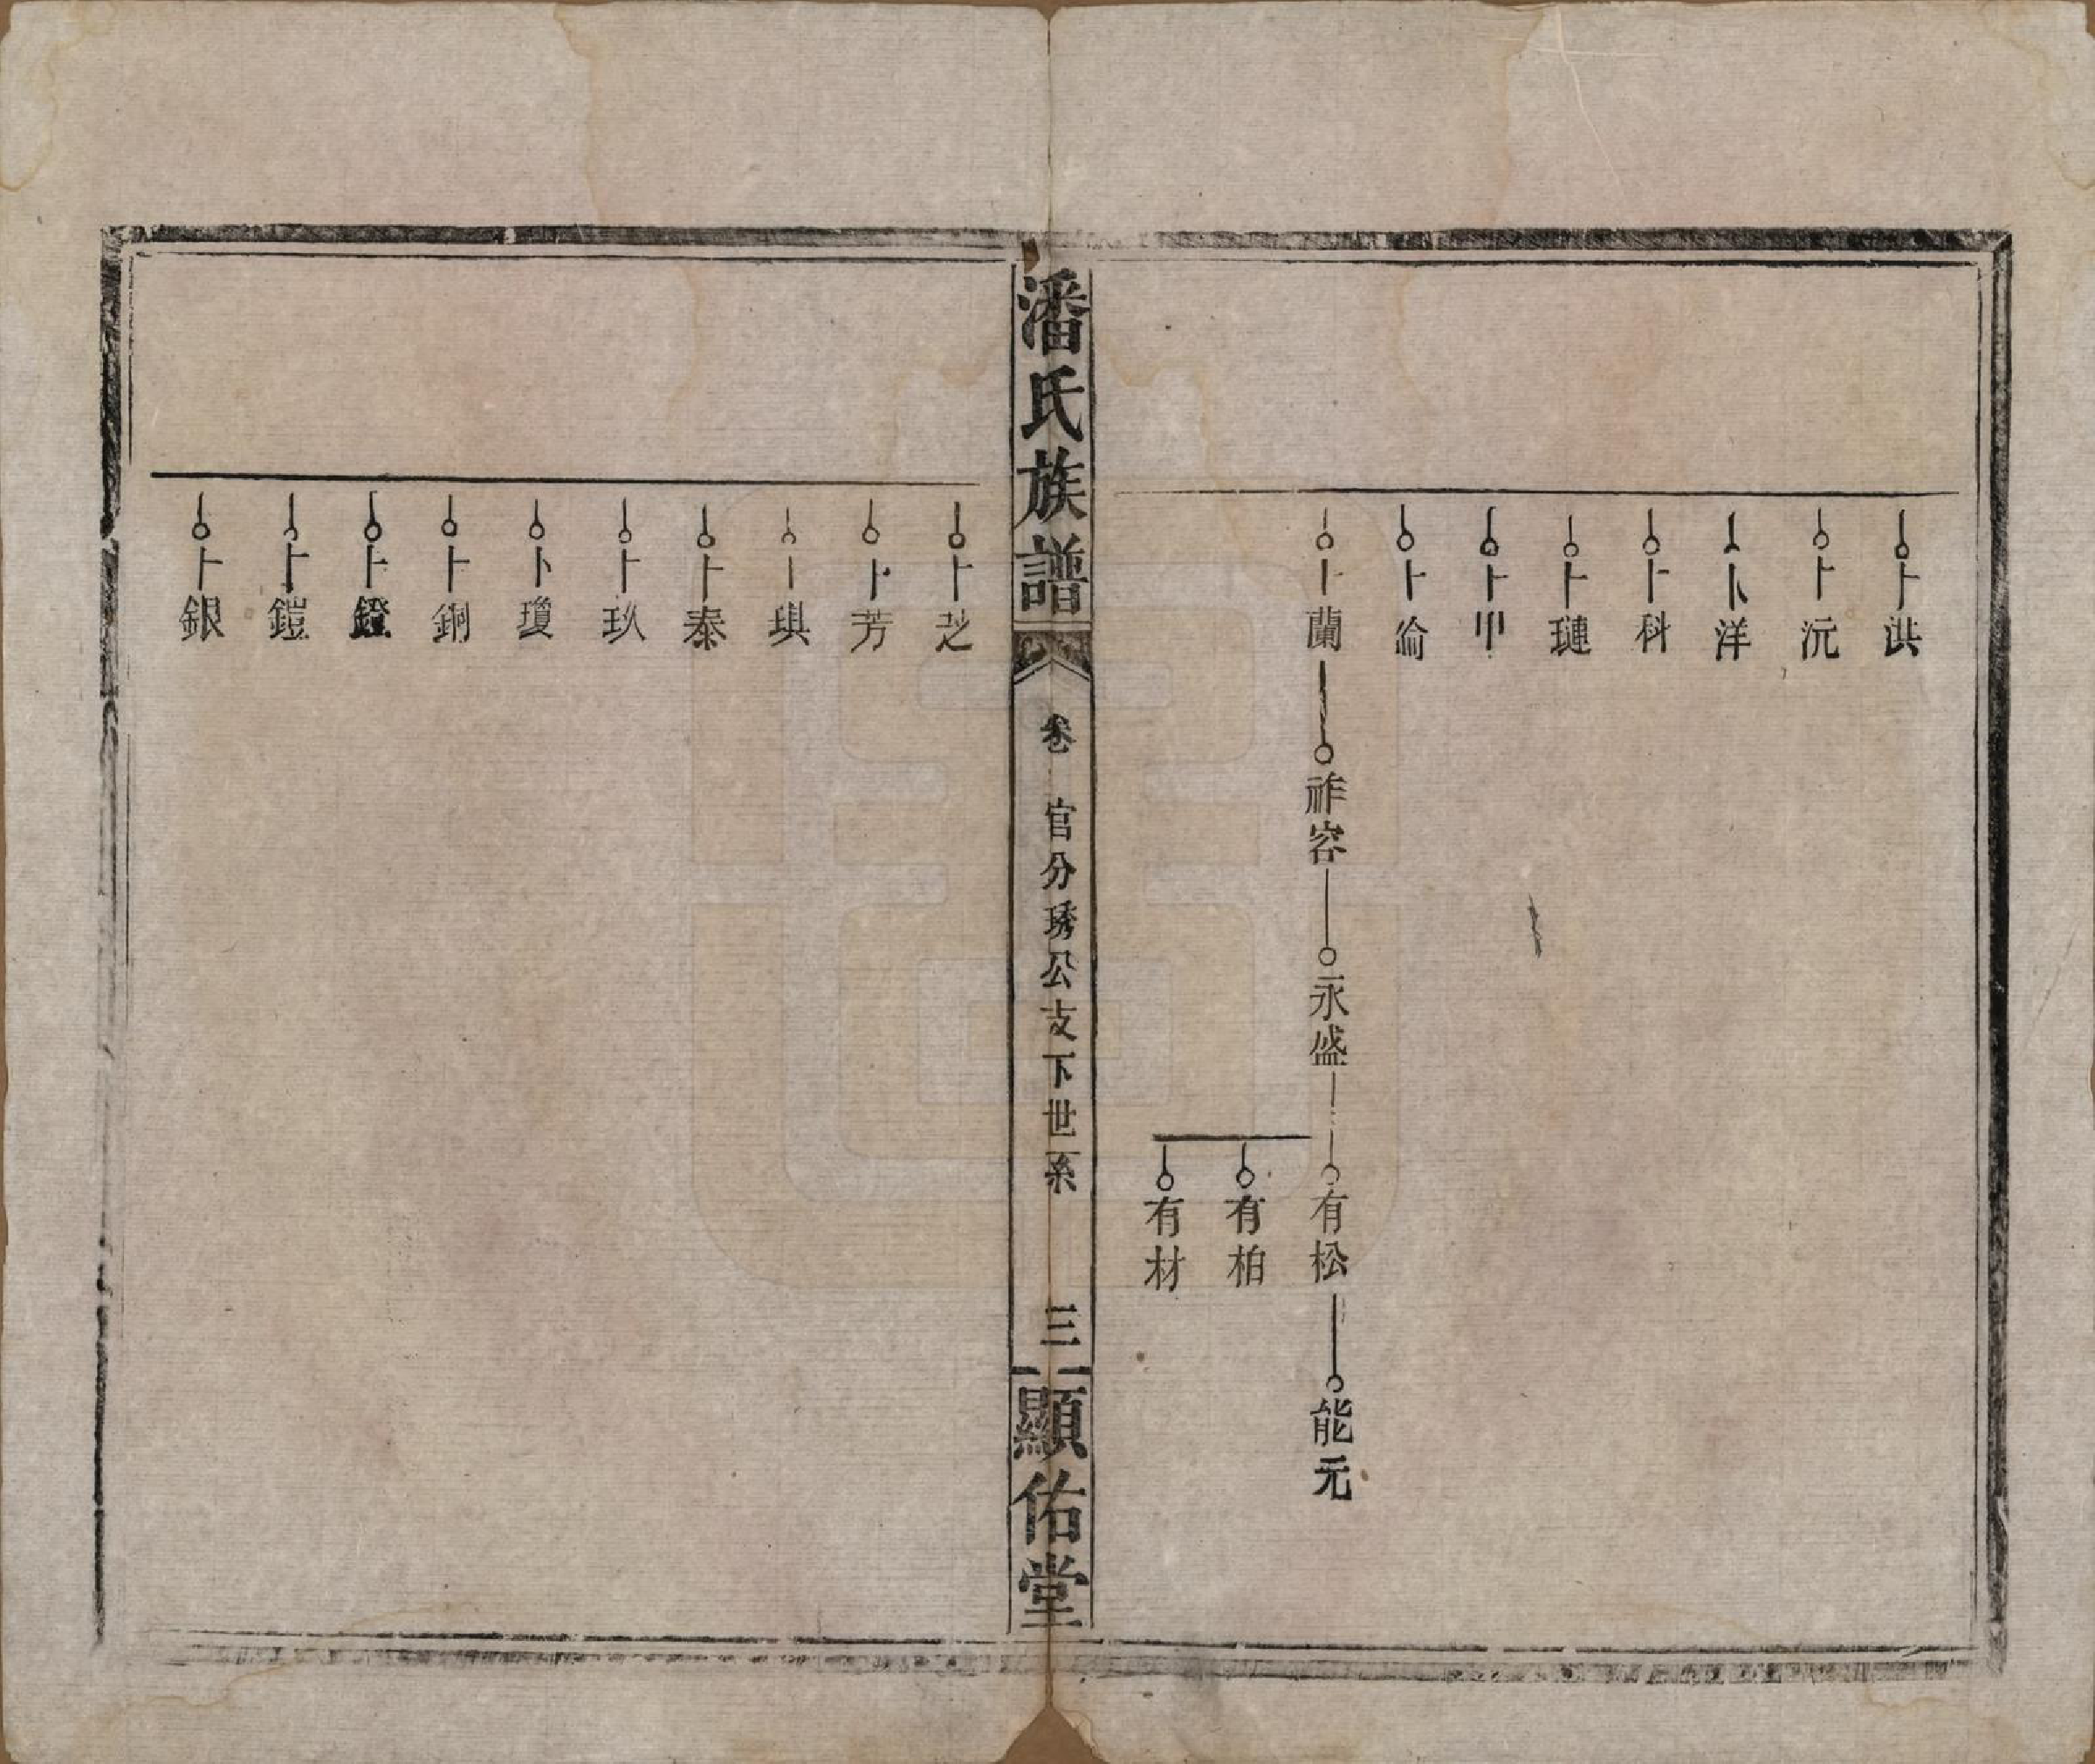 卜洪
卜沅
卜洋
卜科
卜璉
卜
卜倫
卜蘭
祚容
永盛
有松
能元
有柏
有材
潘氏族譜
卷
官分琇公支下世系
三
顯佑堂
卜芝
卜芳
琪
卜泰
卜玖
卜瓊
卜銅
卜鐙
卜鎧
卜銀